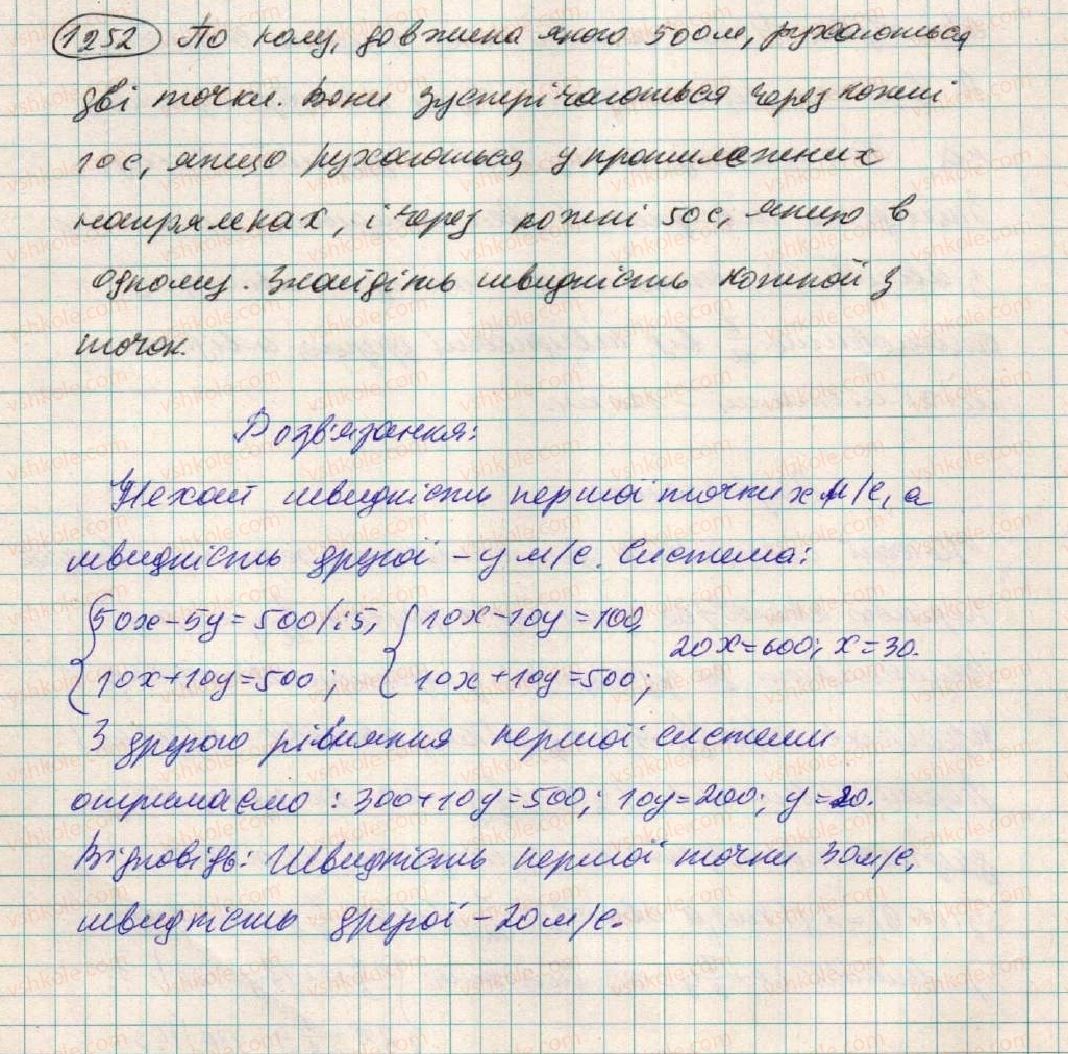 1252 По колу, довжина якого 500м, рухаються
дві точки. Вони зустрічаються через кожні
10с, якщо рухаються у протилежних
напрямках, і через кожні 50с, якщо в
одному. Знайдіть швидкість кожной з
точок.
Розв'язання:
Нехай швидкість першої точки х м/с, а
швидкість другої – у м/с. Система:
{50х-5у=500/:5, {10х-10у=100,
20х=600; х=30.
{10х+10у=500; {10х+10у=500;
З другого рівняння першої системи
отримаємо: 300+10у=500; 10у=200; у=20.
Відповідь: Швидкість першої точки 30м/с,
швидкість другої – 20м/с.